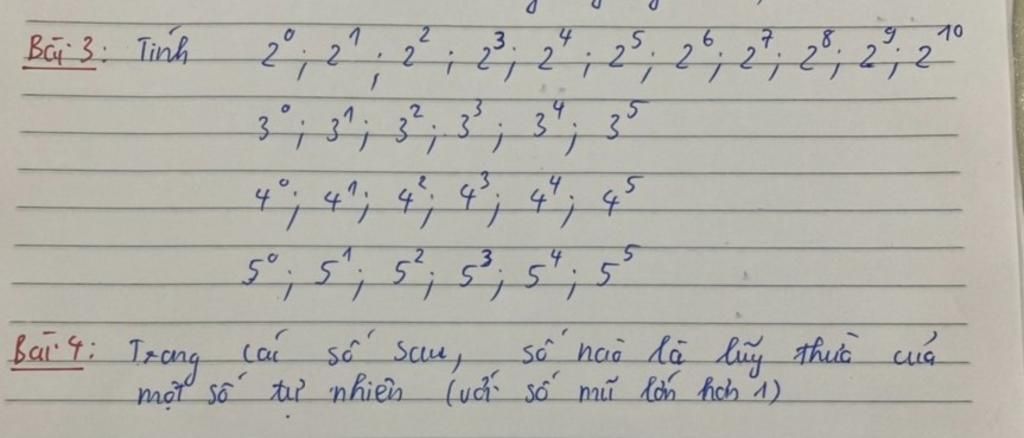 Bài 3: Tính 2⁰; 2¹; 2²; 2³; 2⁴; 2⁵; 2⁶; 2⁷; 2⁸; 2⁹; 2¹⁰
3⁰; 3¹; 3²; 3³; 3⁴; 3⁵
4⁰; 4¹; 4²; 4³; 4⁴; 4⁵
5⁰; 5¹; 5²; 5³; 5⁴; 5⁵
Bài 4: Trong các số sau, số nào là lũy thừa của
một số tự nhiên (với số mũ lớn hơn 1)